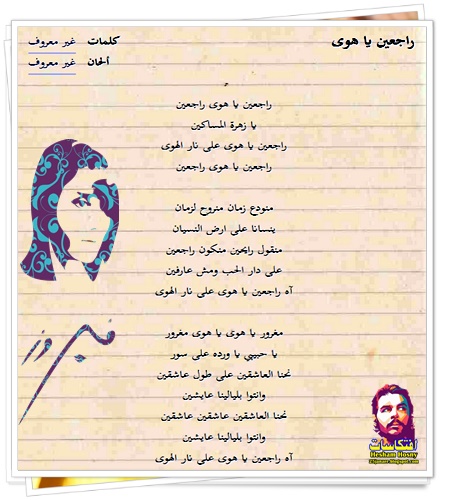 راجعين يا هوى
كلمات غير معروف
ألحان غير معروف
راجعين يا هوى راجعين
يا زهرة المساكين
راجعين يا هوى على نار الهوى
راجعين يا هوى راجعين
منودع زمان منروح لزمان
ينسانا على ارض النسيان
منقول رايحين منكون راجعين
على دار الحب ومش عارفين
آه راجعين يا هوى على نار الهوى
مغرور يا هوى يا هوى مغرور
يا حبيبي يا ورده على سور
نحنا العاشقين على طول عاشقين
وانتوا بليالينا عايشين
نحنا العاشقين عاشقين عاشقين
وانتوا بليالينا عايشين
آه راجعين يا هوى على نار الهوى
فيروز
افتكاسات
Hesham Hosny